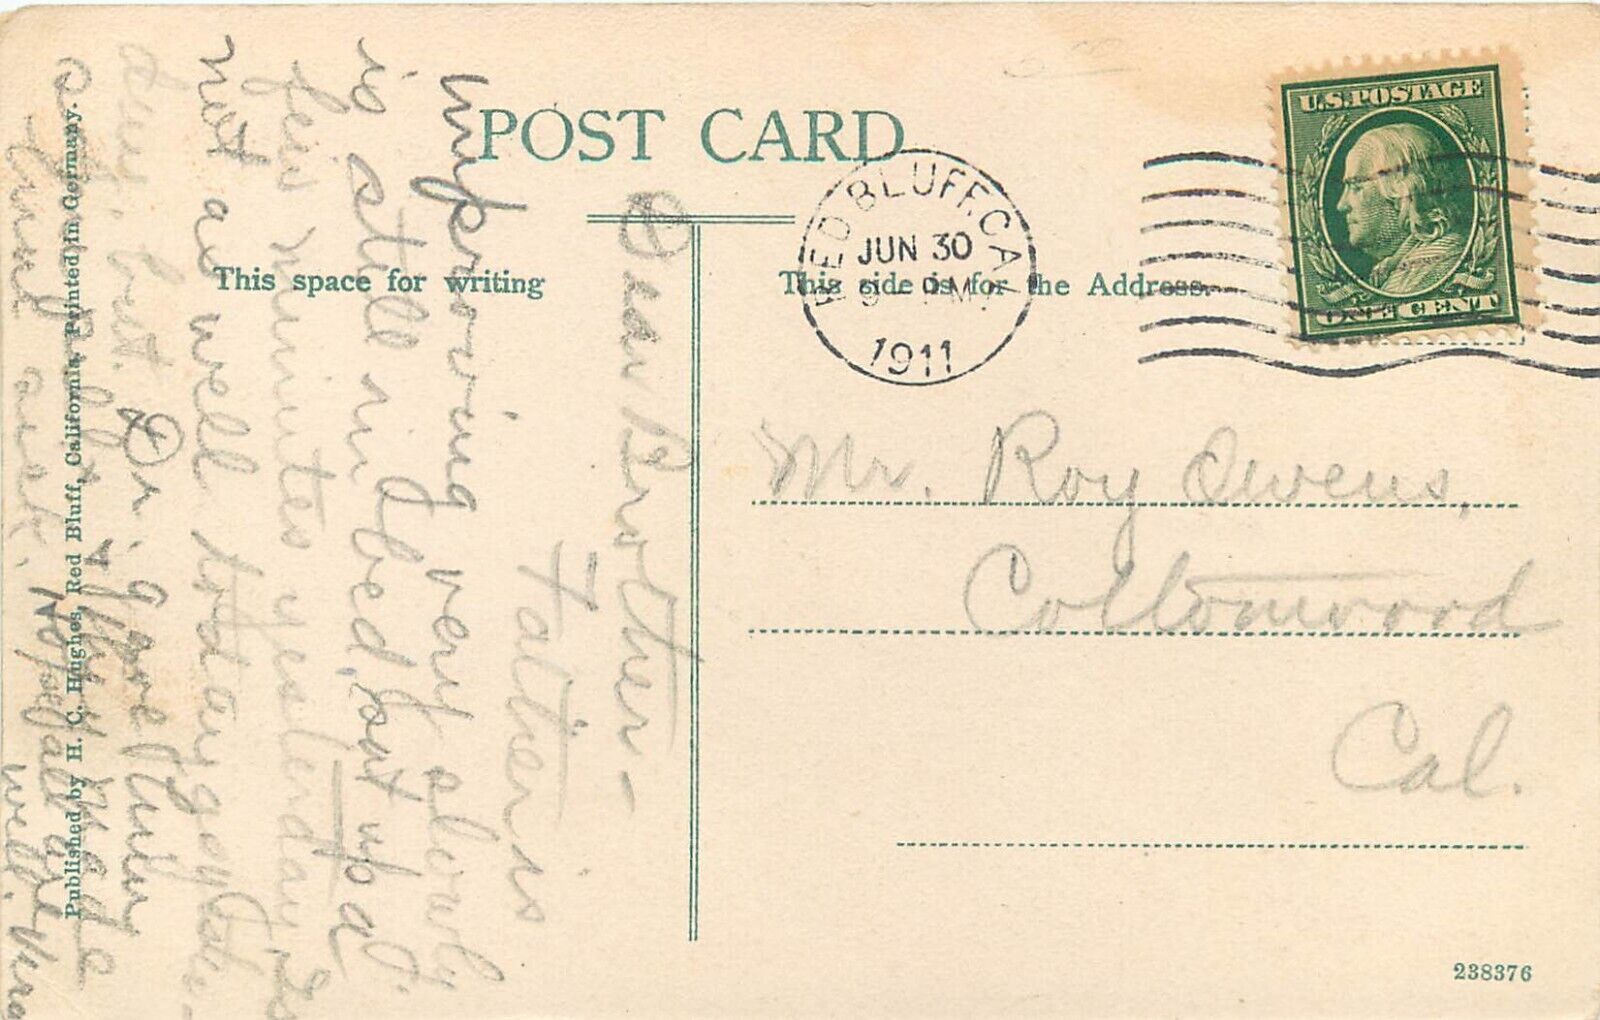 POST CARD
This space for writing
This side is for the Address.
RED BLUFF, CAL
JUN 30
1911
U.S. POSTAGE
ONE CENT
Mr. Roy Owens,
Cottonwood
Cal.
238376
Published by H. C. Hughes, Red Bluff, California. Printed in Germany.
Dear Brother—
Father is
improving very slowly
is still in bed, sat up a
few minutes yesterday. Is
not as well today
but. Dr. gave him
made
sick. Hope all are
well. Vera